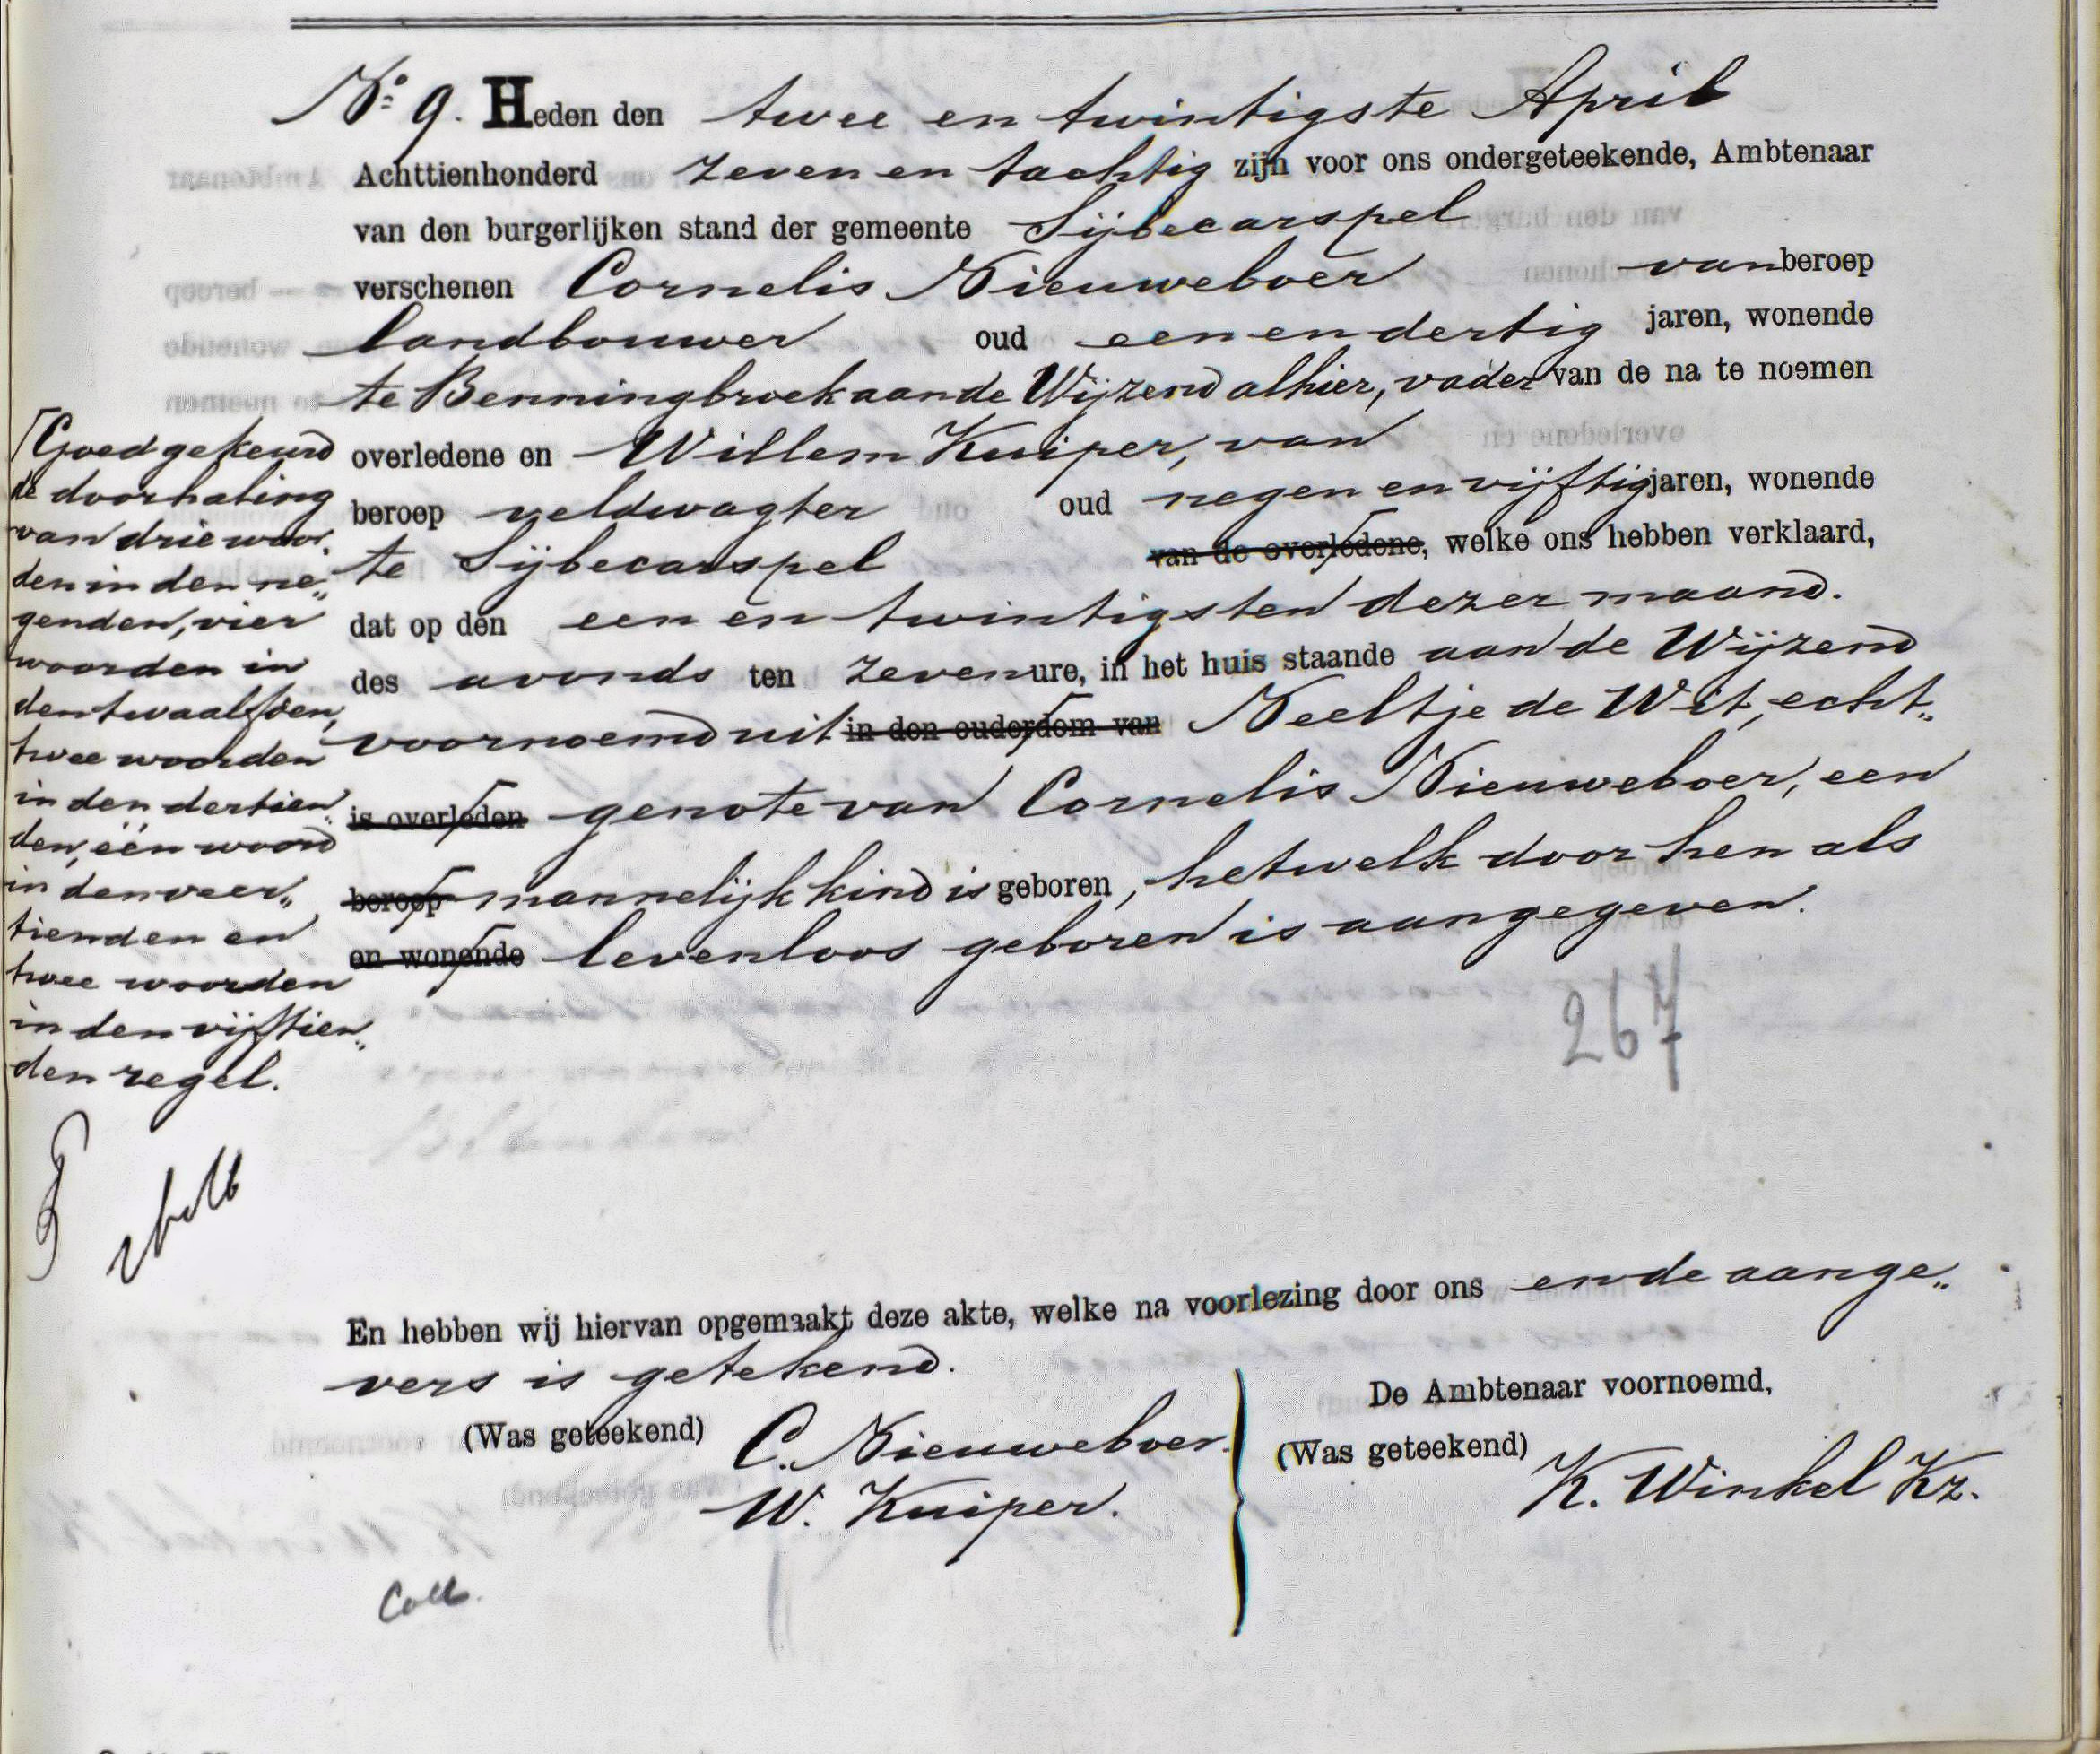 No. 9. Heden den twee en twintigste April
Achttienhonderd zeven en tachtig zijn voor ons ondergeteekende, Ambtenaar
van den burgerlijken stand der gemeente Sijbecarspel
verschenen Cornelis Nieuweboer van beroep
landbouwer oud een en dertig jaren, wonende
te Benningbroek aan de Wijzend alhier, vader van de na te noemen
overledene en Willem Kuiper, van
beroep veldwagter oud negen en vijftig jaren, wonende
te Sijbecarspel van de overledene, welke ons hebben verklaard,
dat op den een en twintigsten dezer maand.
des avonds ten zeven ure, in het huis staande aan de Wijzend
voornoemd uit in den ouderdom van Neeltje de Wit, echt„
is overleden genote van Cornelis Nieuweboer, een
beroep mannelijk kind is geboren, hetwelk door hen als
en wonende levenloos geboren is aangegeven.
Goedgekeurd
de doorhaling
van drie woor„
den in den ne„
genden, vier
woorden in
den twaalfden,
twee woorden
in den dertien„
den, één woord
in den veer„
tienden en
twee woorden
in den vijftien„
den regel.
267
En hebben wij hiervan opgemaakt deze akte, welke na voorlezing door ons en de aange„
vers is getekend.
De Ambtenaar voornoemd,
(Was geteekend) C. Nieuweboer. (Was geteekend)
W. Kuiper. K. Winkel Kz.
Coll.